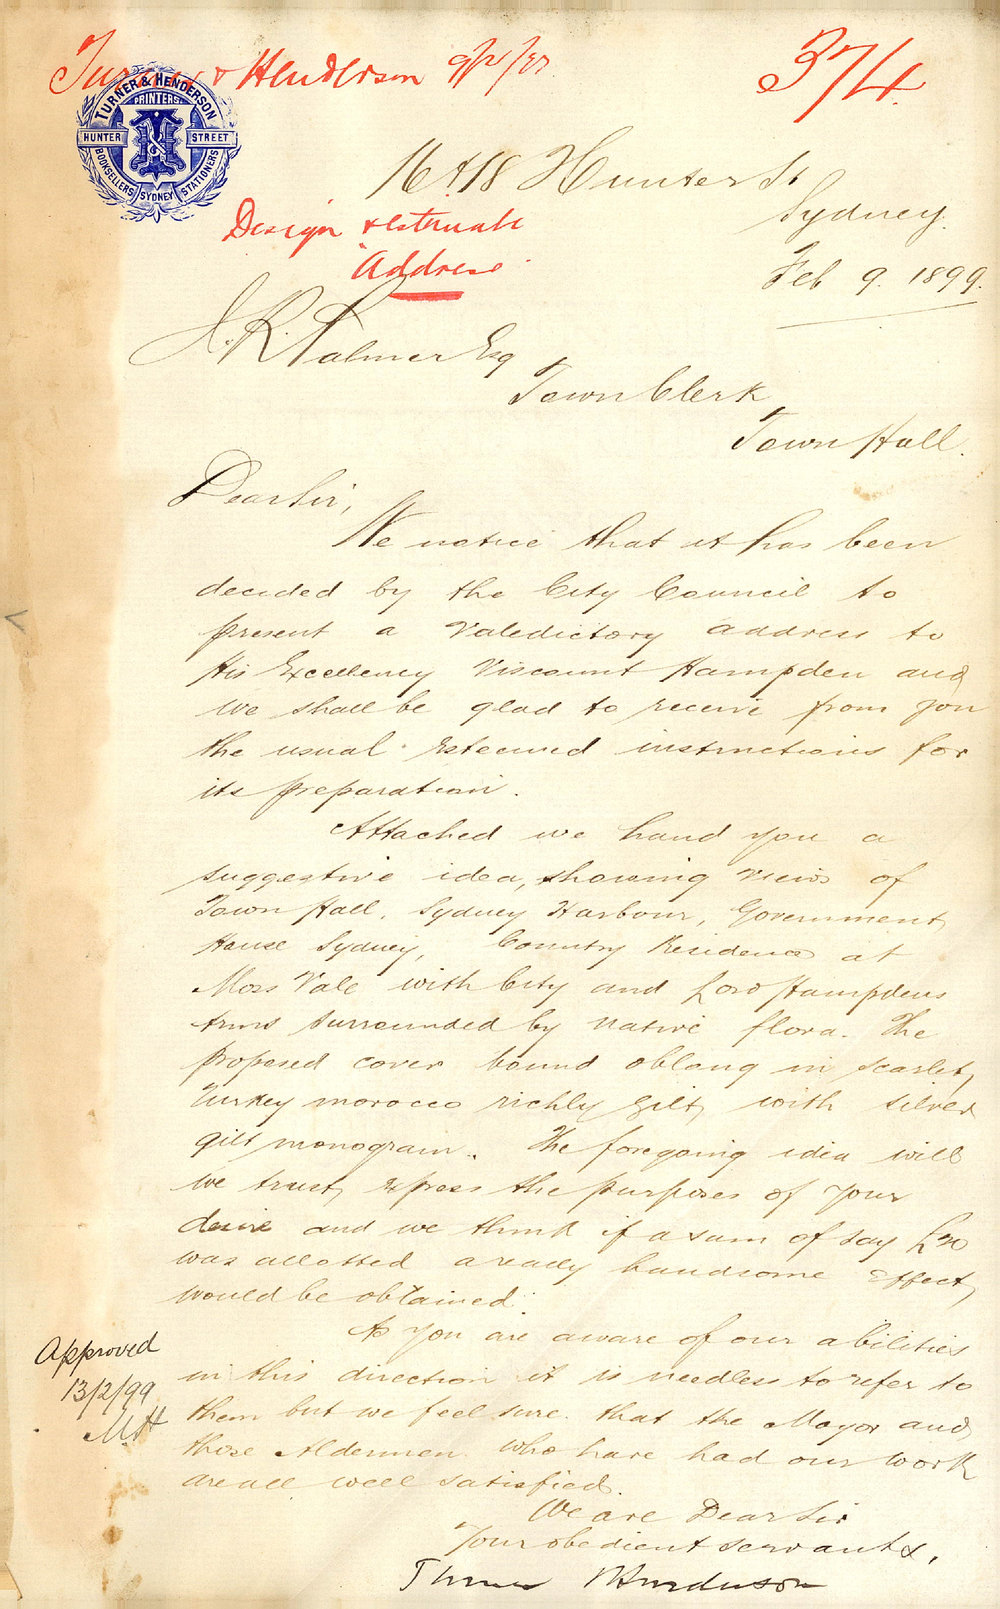 Turner & Henderson 9/2/99
374
TURNER & HENDERSON
PRINTERS
HUNTER STREET
BOOKSELLERS SYDNEY STATIONERS
16 & 18 Hunter St
Sydney.
Feb 9. 1899.
Design & estimate
Address
J. R. Palmer Esq
Town Clerk
Town Hall.
Dear Sir,
We notice that it has been
decided by the City Council to
present a Valedictory address to
His Excellency Viscount Hampden and
we shall be glad to receive from you
the usual esteemed instructions for
its preparation.
Attached we hand you a
suggestive idea, showing views of
Town Hall, Sydney Harbour, Government
House Sydney, Country Residence at
Moss Vale with City and Lord Hampdens
Arms surrounded by native flora. The
proposed cover bound oblong in scarlet
Turkey morocco richly gilt, with silver
gilt monogram. The foregoing idea will
we trust, express the purposes of your
desire and we think if a sum of say
was allotted a really handsome effect
would be obtained.
As you are aware of our abilities
in this direction it is needless to refer to
them but we feel sure that the Mayor and
those Aldermen who have had our work
are all well satisfied.
We are Dear Sir
Your obedient servants,
Turner & Henderson
Approved
13/2/99
M.H